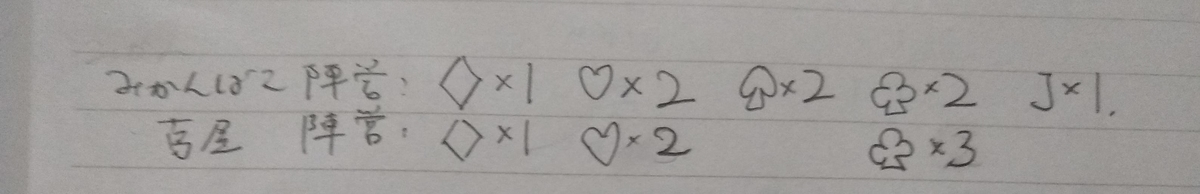 みかんばこ 陣営: ♢×1 ♡×2 ♤×2 ♧×2 J×1.
百屋 陣営: ♢×1 ♡×2 ♧×3